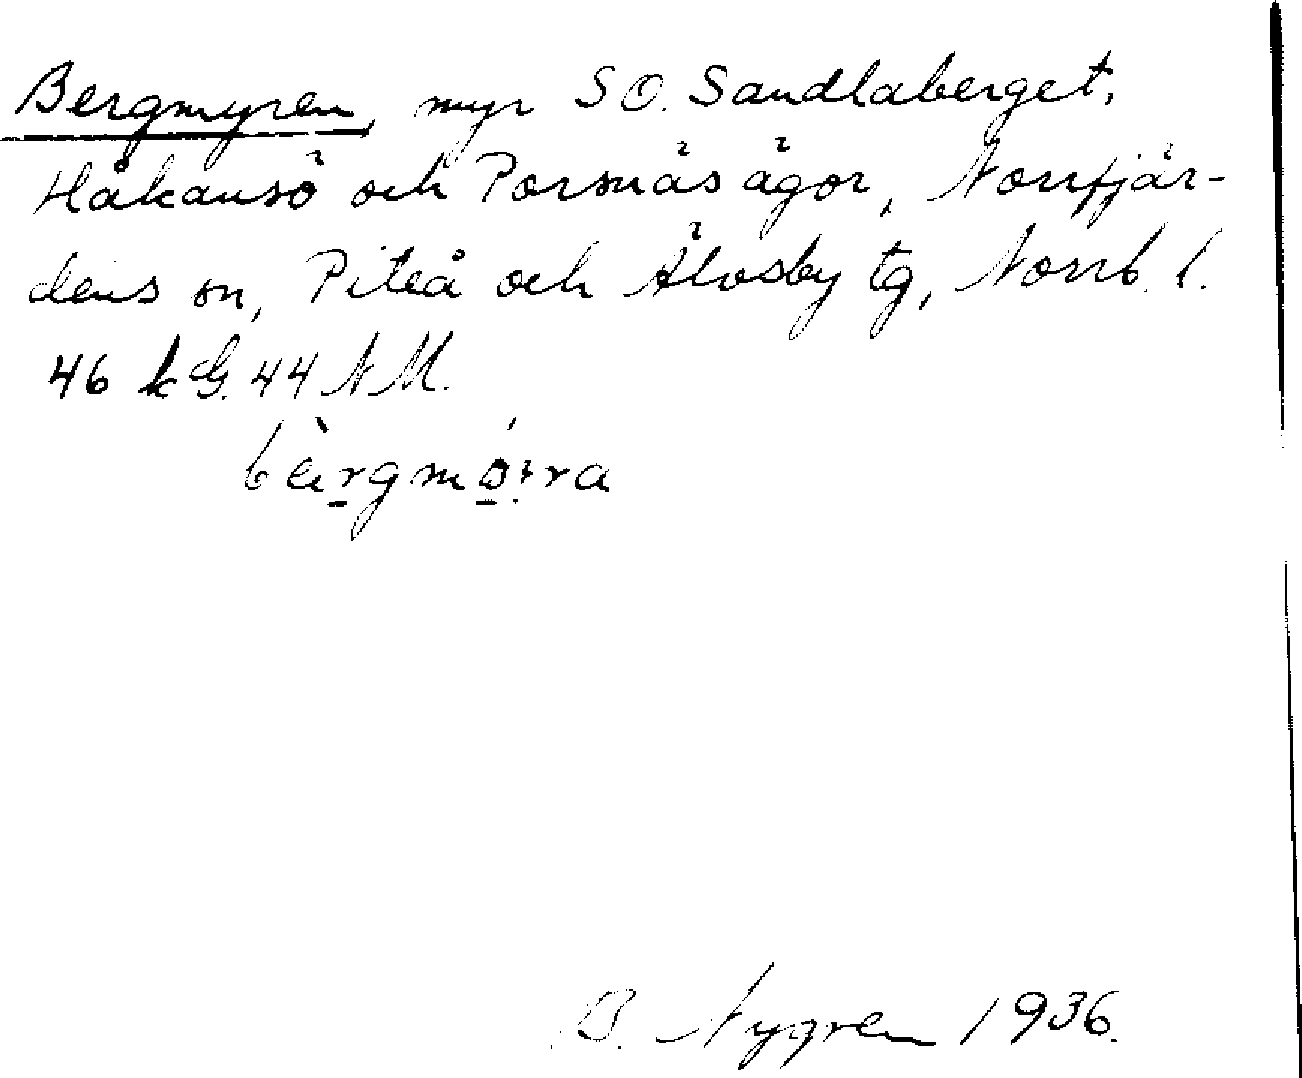 Bergmyren, myr SO. Sandlaberget,
Håkansö och Porsnäs ägor, Norrfjär-
dens sn, Piteå och Älvsby tg, Norrb. l.
46 k G. 44 N M.
B. Nygren 1936.